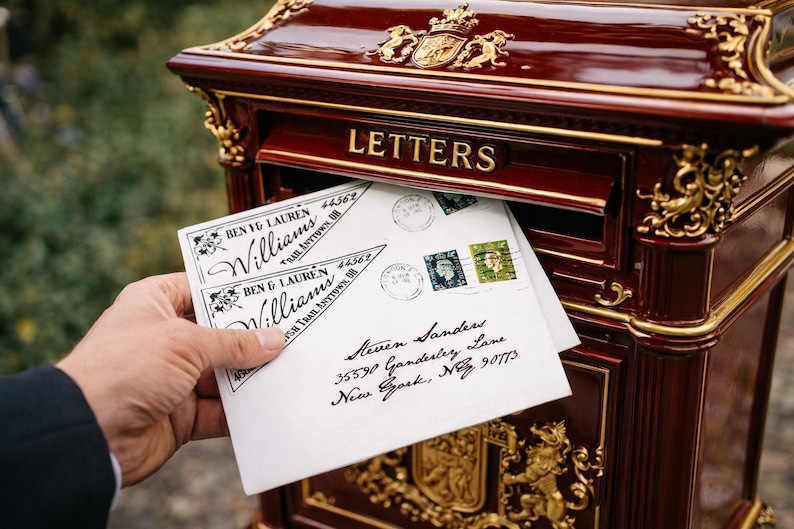 LETTERS
BEN & LAUREN
Williams
TRAIL ANYTOWN, OH
44562
BEN & LAUREN
Williams
TRAIL ANYTOWN, OH
44562
LONDON
Steven Sanders
35590 Ganderley Lane
New York, NY 90773